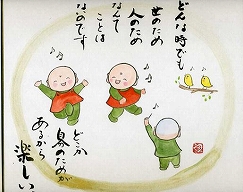 どんな時でも
世のため
人のため
なんて
ことは
ないのです
どこか
己のためが
あるから
楽しい